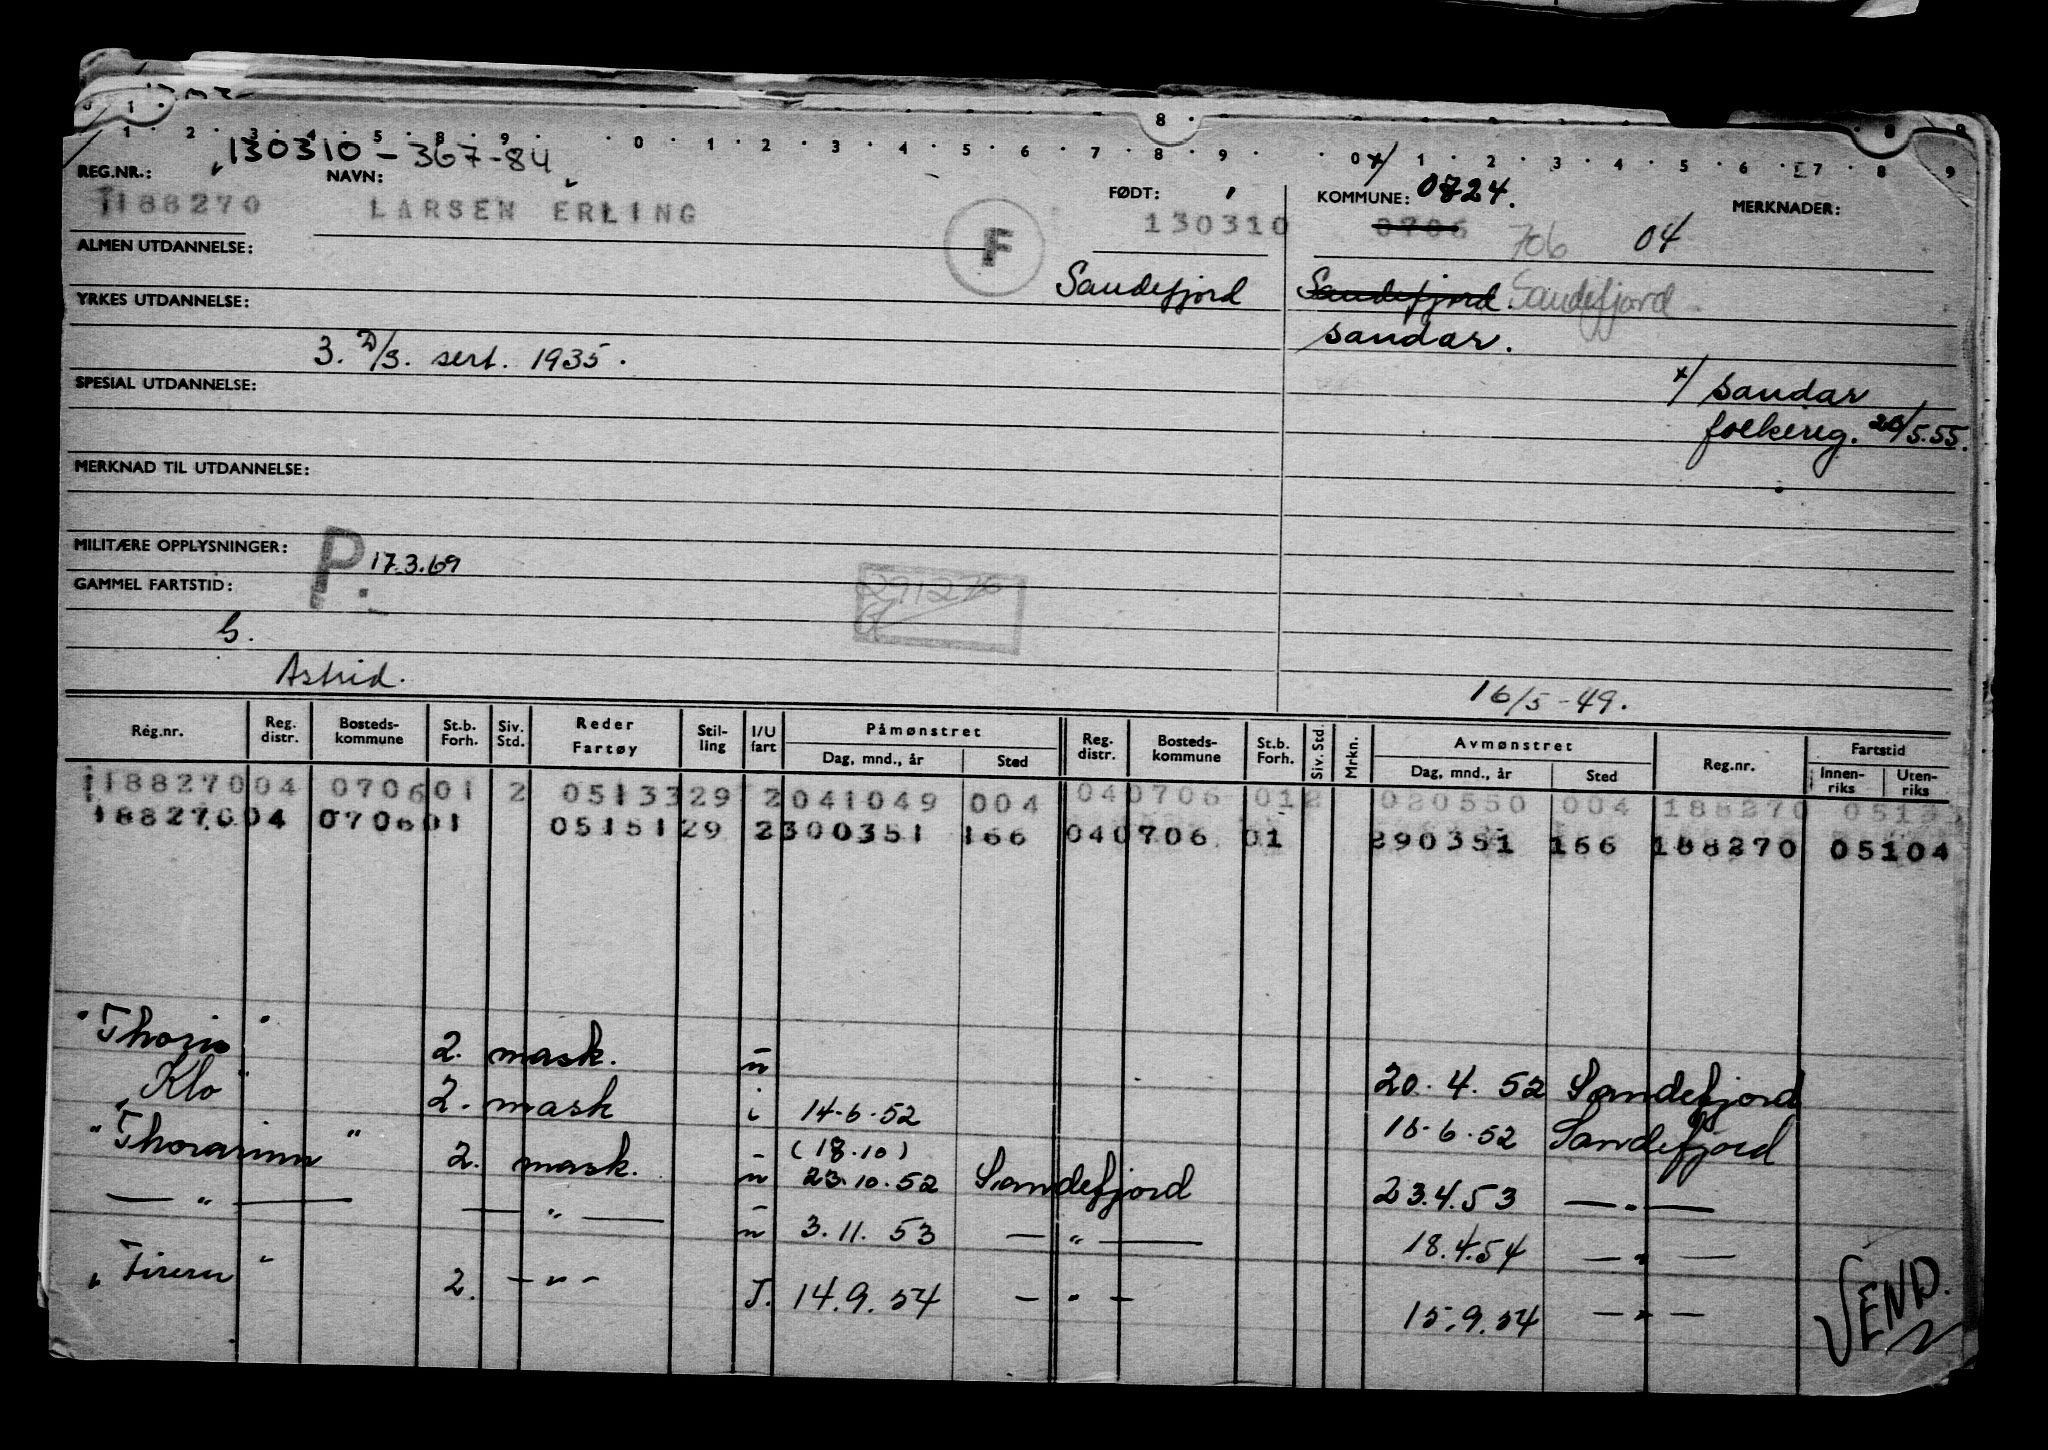 0 1 8 8 9
1 2 3 4 5 8 9 0 1 2 3 4 5 6 7 8 9 0 1 2 3 4 5 6 7 8 9
130310-367-84
REG.NR.: NAVN: FØDT: KOMMUNE: 0724. MERKNADER:
188270 LARSEN ERLING F 130310 0706 706 04
ALMEN UTDANNELSE:
Sandefjord Sandefjord Sandefjord
YRKES UTDANNELSE: sandar.
3. D/S. sert. 1935.
SPESIAL UTDANNELSE: x/ sandar
folkereg. 20/5.55.
MERKNAD TIL UTDANNELSE:
MILITÆRE OPPLYSNINGER: P. 17.3.69
GAMMEL FARTSTID: 271276
G.
Astrid. 16/5-49.
Reg.nr. Reg. distr. Bosteds-kommune St.b. Forh. Siv. Std. Reder Fartøy Stil-ling I/U fart Påmønstret Dag, mnd., år Sted Reg. distr. Bosteds-kommune St.b. Forh. Siv. Std. Mrkn. Avmønstret Dag, mnd., år Sted Reg.nr. Fartstid Innen-riks Uten-riks
188270 04 0706 01 2 05133 29 2 041049 004 04 0706 01 2 020550 004 188270 0513
188270 04 0706 01 05151 29 2 300351 166 04 0706 01 290351 166 188270 05104
"Thoris" 2. mask. u 20.4.52 Sandefjord
"Klo" 2. mask i 14.6.52 15.6.52 Sandefjord
"Thorarinn" 2. mask. u (18.10) 23.10.52 Sandefjord 23.4.53 — " —
— " — — " — u 3.11.53 — " — 18.4.54 — " —
"Tirern" 2. - " - I. 14.9.54 - " - 15.9.54 — " —
SEND.